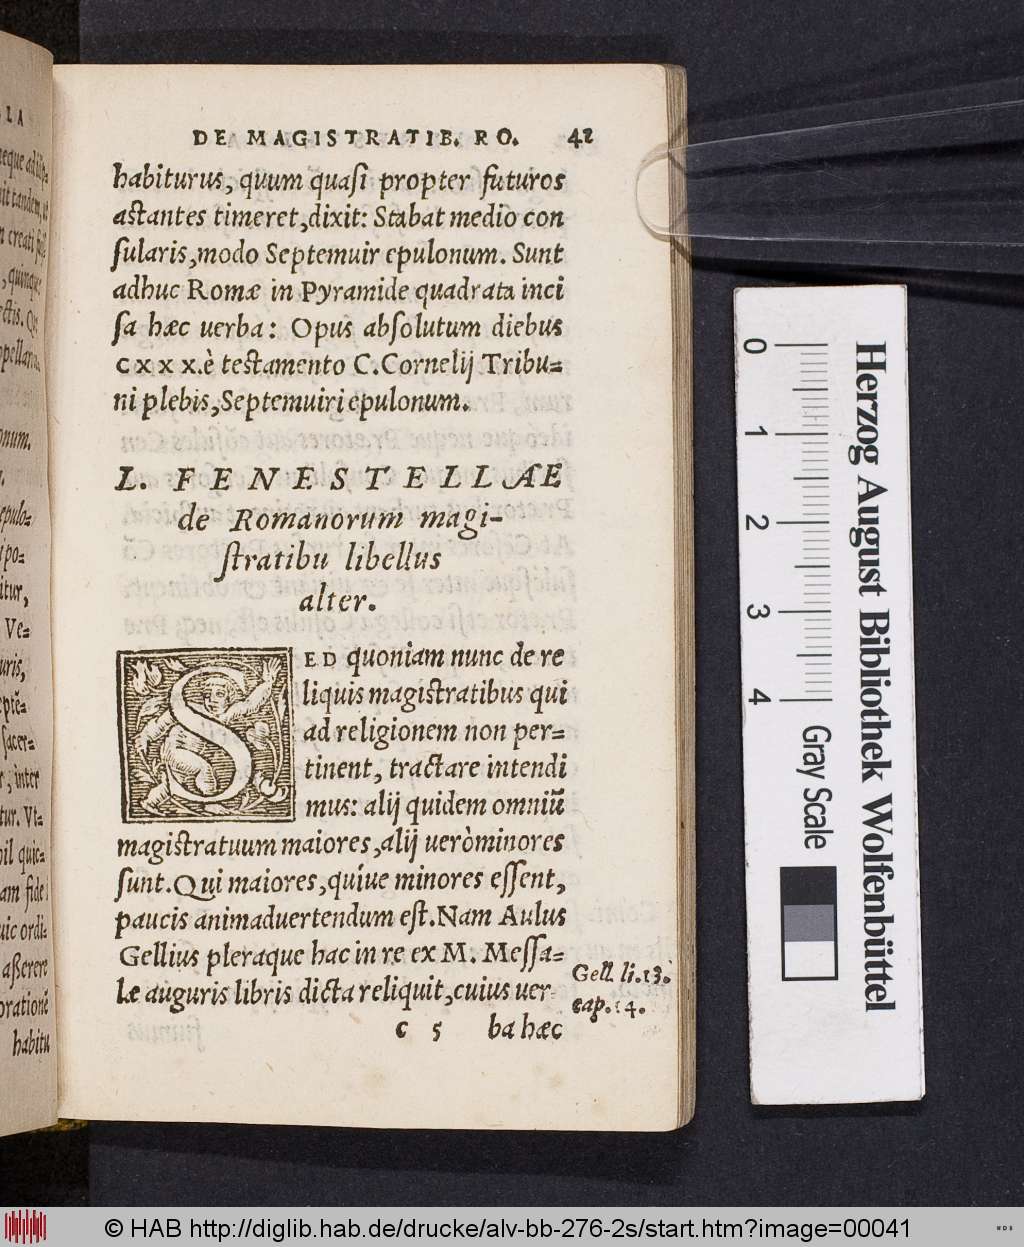 DE MAGISTRATIB. RO. 41
habiturus, quum quasi propter futuros
astantes timeret, dixit: Stabat medio con
sularis, modo Septemuir epulonum. Sunt
adhuc Romæ in Pyramide quadrata inci
sa hæc uerba: Opus absolutum diebus
CXXX. è testamento C. Cornelij Tribu=
ni plebis, Septemuiri epulonum.
L. FENESTELLAE
de Romanorum magi-
stratibu libellus
alter.
SED quoniam nunc de re
liquis magistratibus qui
ad religionem non per=
tinent, tractare intendi
mus: alij quidem omniū
magistratuum maiores, alij uerò minores
sunt. Qui maiores, quíue minores essent,
paucis animaduertendum est. Nam Aulus
Gellius pleraque hac in re ex M. Messa=
læ auguris libris dicta reliquit, cuius uer
Gell. li. 13.
cap. 14.
c 5 ba hæc
LA
onum.
epulo=
ipo=
itur,
Ve=
uris,
septē=
sacer=
r, inter
tur. Vt=
hil quic=
am fide
uic ordi=
aßerere
orationē
habitu
0
1
2
3
4
Gray Scale
Herzog August Bibliothek Wolfenbüttel
© HAB http://diglib.hab.de/drucke/alv-bb-276-2s/start.htm?image=00041
WDB